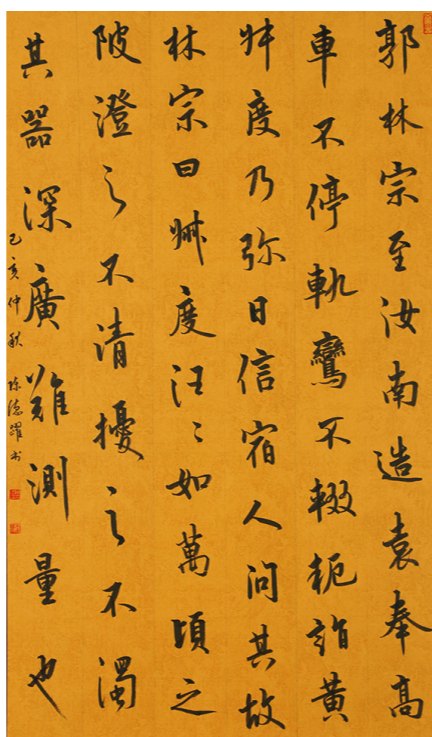 郭林宗至汝南造袁奉高
車不停軌鸞不輟軛詣黃
叔度乃弥日信宿人問其故
林宗曰叔度汪〻如萬頃之
陂澄之不清擾之不濁
其器深廣難測量也
己亥仲秋 陈德躍书